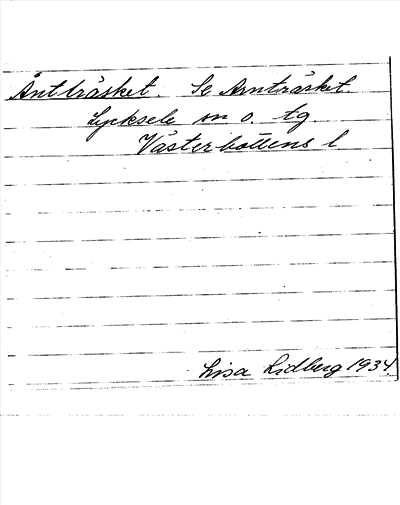 Åntträsket. Se Arnträsket
Lycksele sn o. tg
Västerbottens l
Lisa Lidberg 1934.